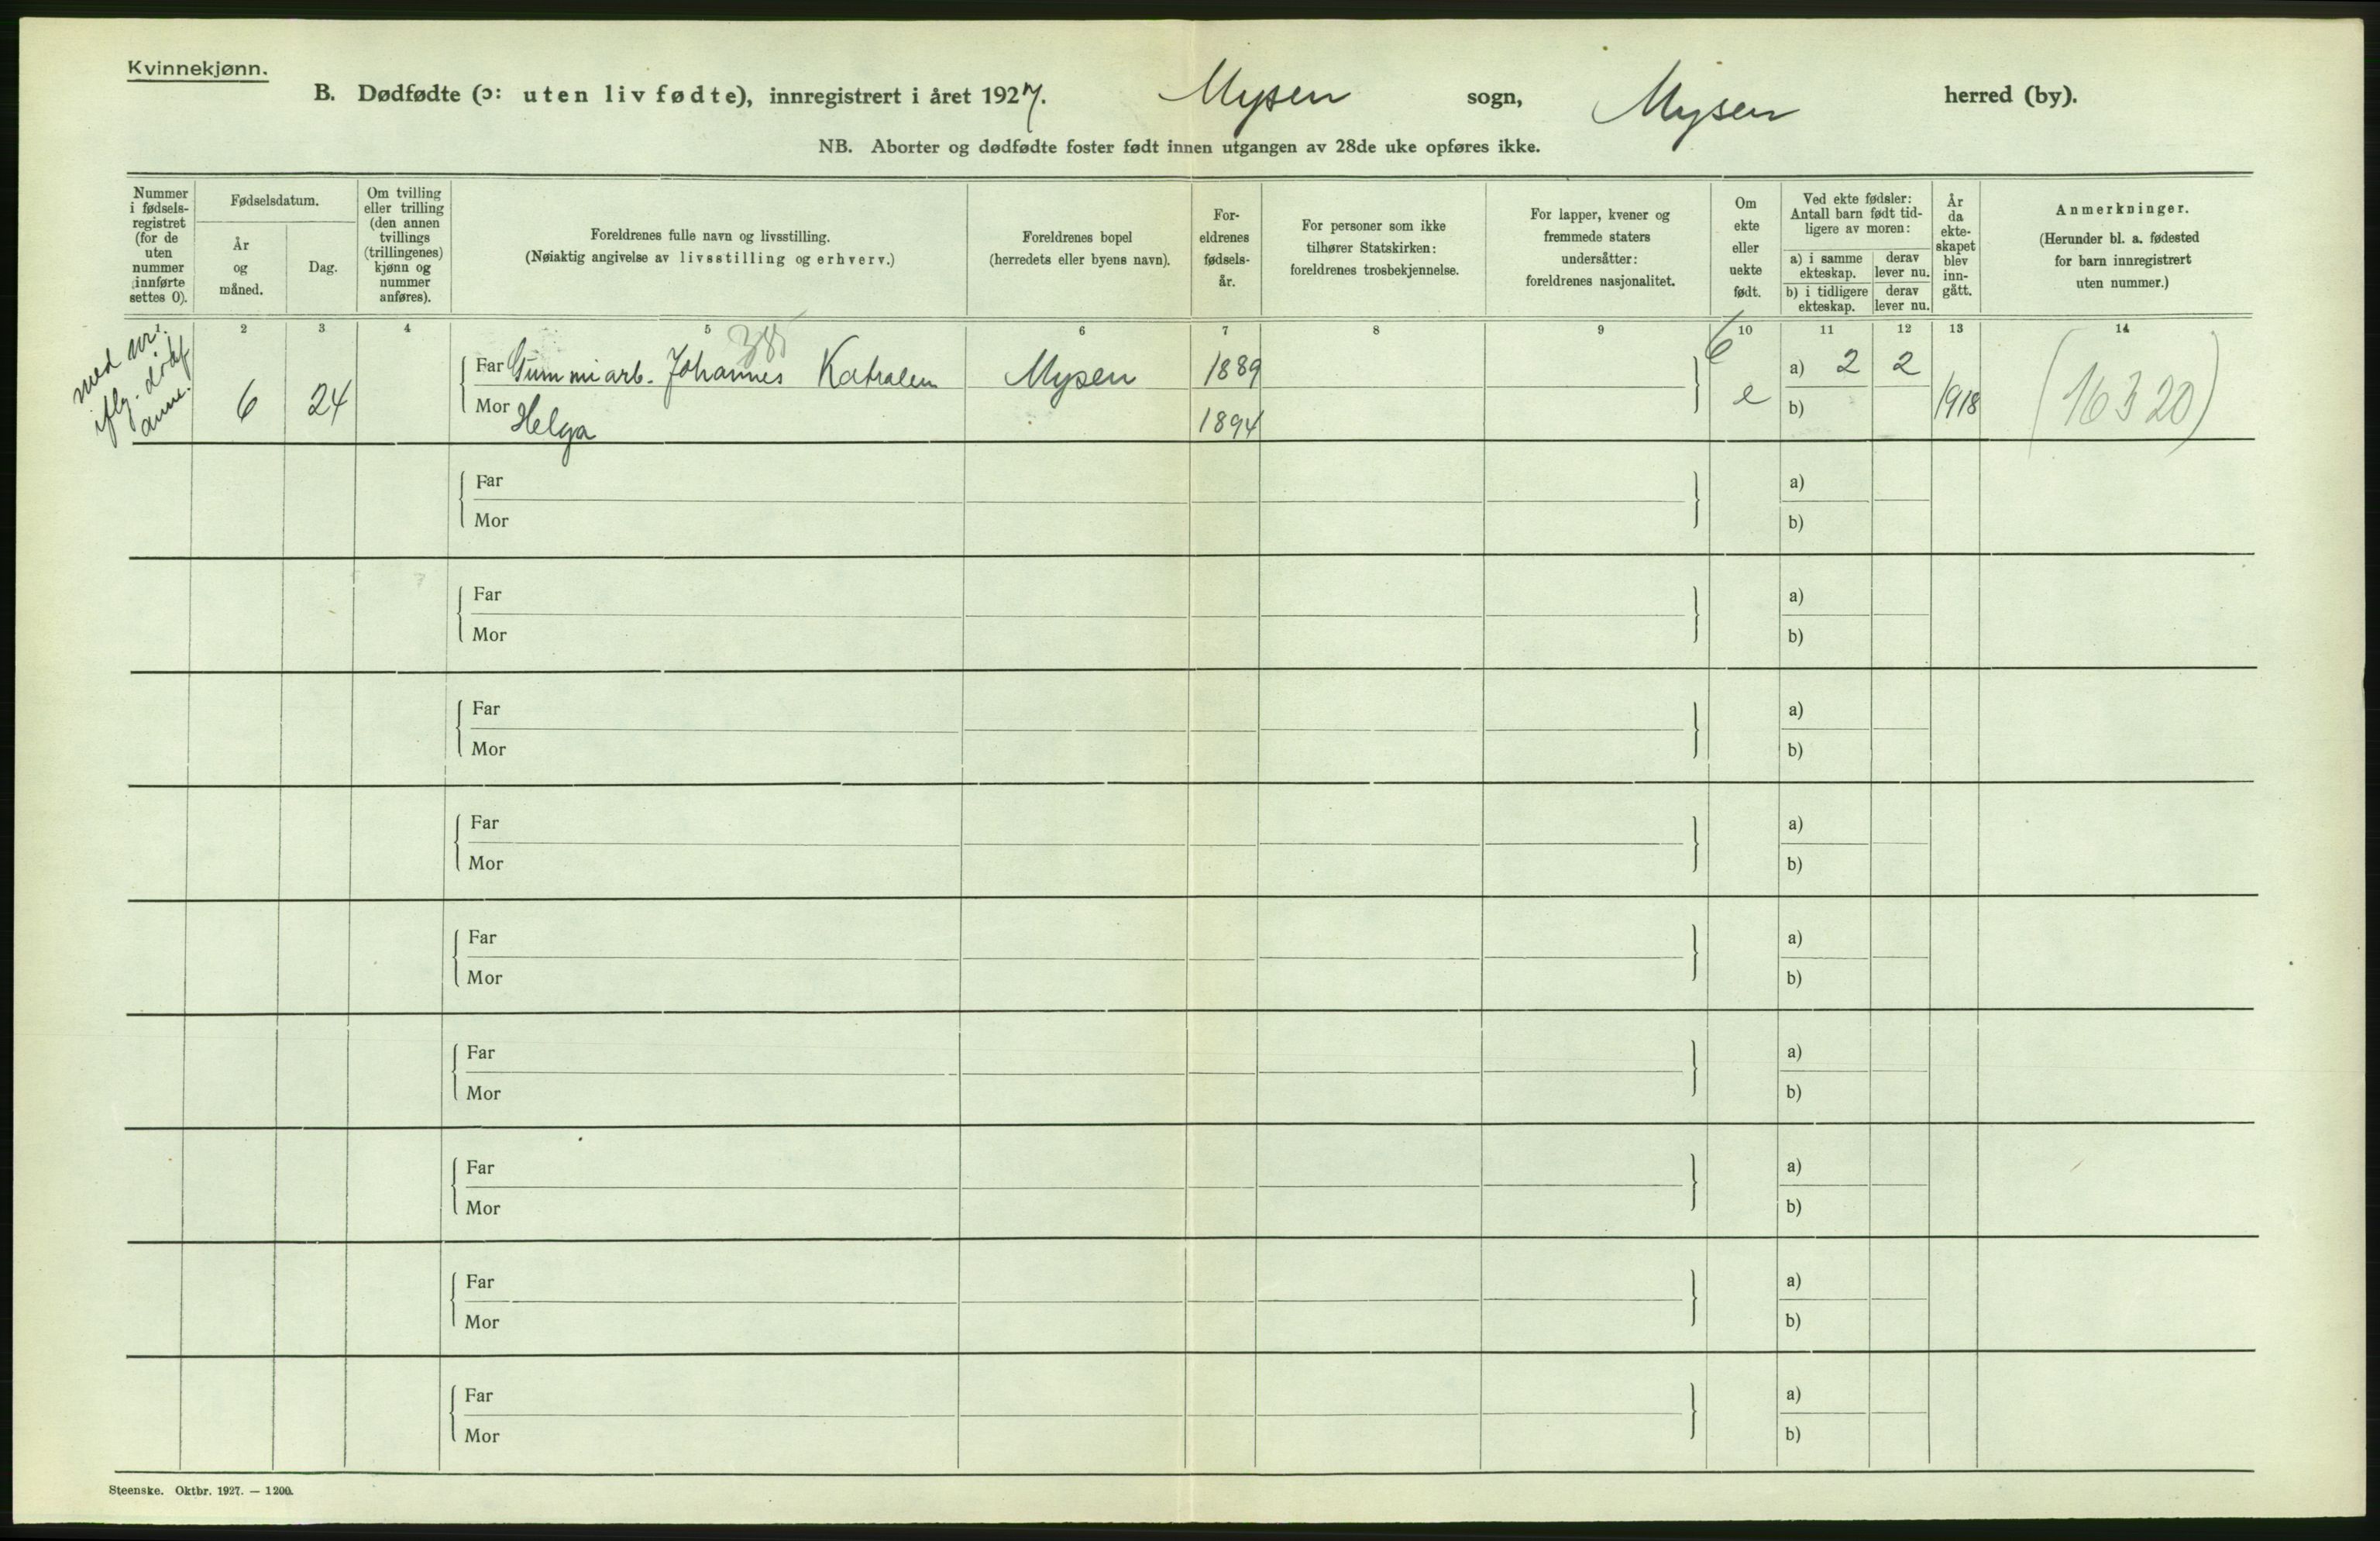 Kvinnekjønn.
B. Dødfødte (ɔ: uten liv fødte), innregistrert i året 1927. Mysen sogn, Mysen herred (by).
NB. Aborter og dødfødte foster født innen utgangen av 28de uke opføres ikke.
Nummer i fødsels-registret (for de uten nummer innførte settes 0).
Fødselsdatum.
År og måned.
Dag.
Om tvilling eller trilling (den annen tvillings (trillingenes) kjønn og nummer anføres).
Foreldrenes fulle navn og livsstilling.
(Nøiaktig angivelse av livsstilling og erhverv.)
Foreldrenes bopel
(herredets eller byens navn).
For-eldrenes fødsels-år.
For personer som ikke tilhører Statskirken: foreldrenes trosbekjennelse.
For lapper, kvener og fremmede staters undersåtter: foreldrenes nasjonalitet.
Om ekte eller uekte født.
Ved ekte fødsler: Antall barn født tid-ligere av moren:
a) i samme ekteskap. derav lever nu.
b) i tidligere ekteskap. derav lever nu.
År da ekte-skapet blev inn-gått.
Anmerkninger.
(Herunder bl. a. fødested for barn innregistrert uten nummer.)
1. 2 3 4 5 6 7 8 9 10 11 12 13 14
med nr.
iflg. dødf
anne.
385
6 24 Far Gummiarb. Johannes Katralen Mysen 1889 6 e a) 2 2 1918 (16320)
Mor Helga 1894 b)
Far a)
Mor b)
Far a)
Mor b)
Far a)
Mor b)
Far a)
Mor b)
Far a)
Mor b)
Far a)
Mor b)
Far a)
Mor b)
Far a)
Mor b)
Far a)
Mor b)
Steenske. Oktbr. 1927. — 1200.